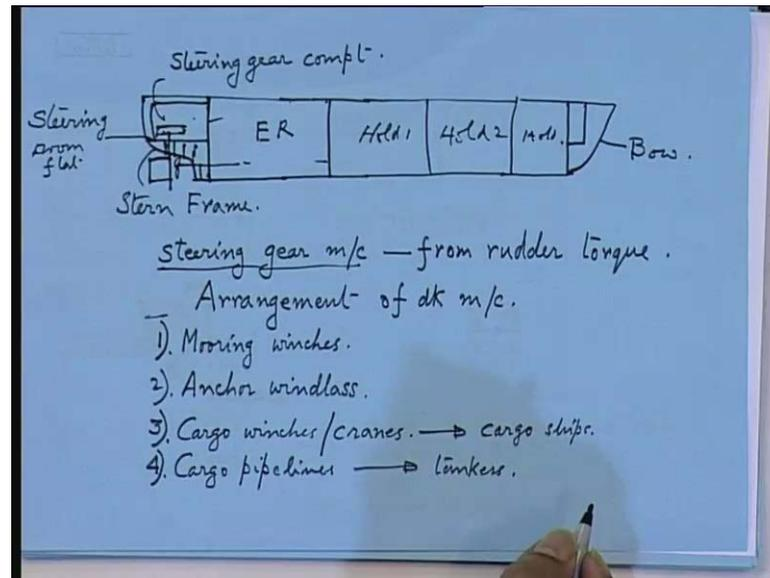 Steering gear compt.
Steering
room
flat.
ER
Hold 1
Hold 2
Hold.
Bow.
Stern Frame.
Steering gear m/c — from rudder torque.
Arrangement of dk m/c.
1). Mooring winches.
2). Anchor windlass.
3). Cargo winches/cranes. → cargo ships.
4). Cargo pipelines → tankers.